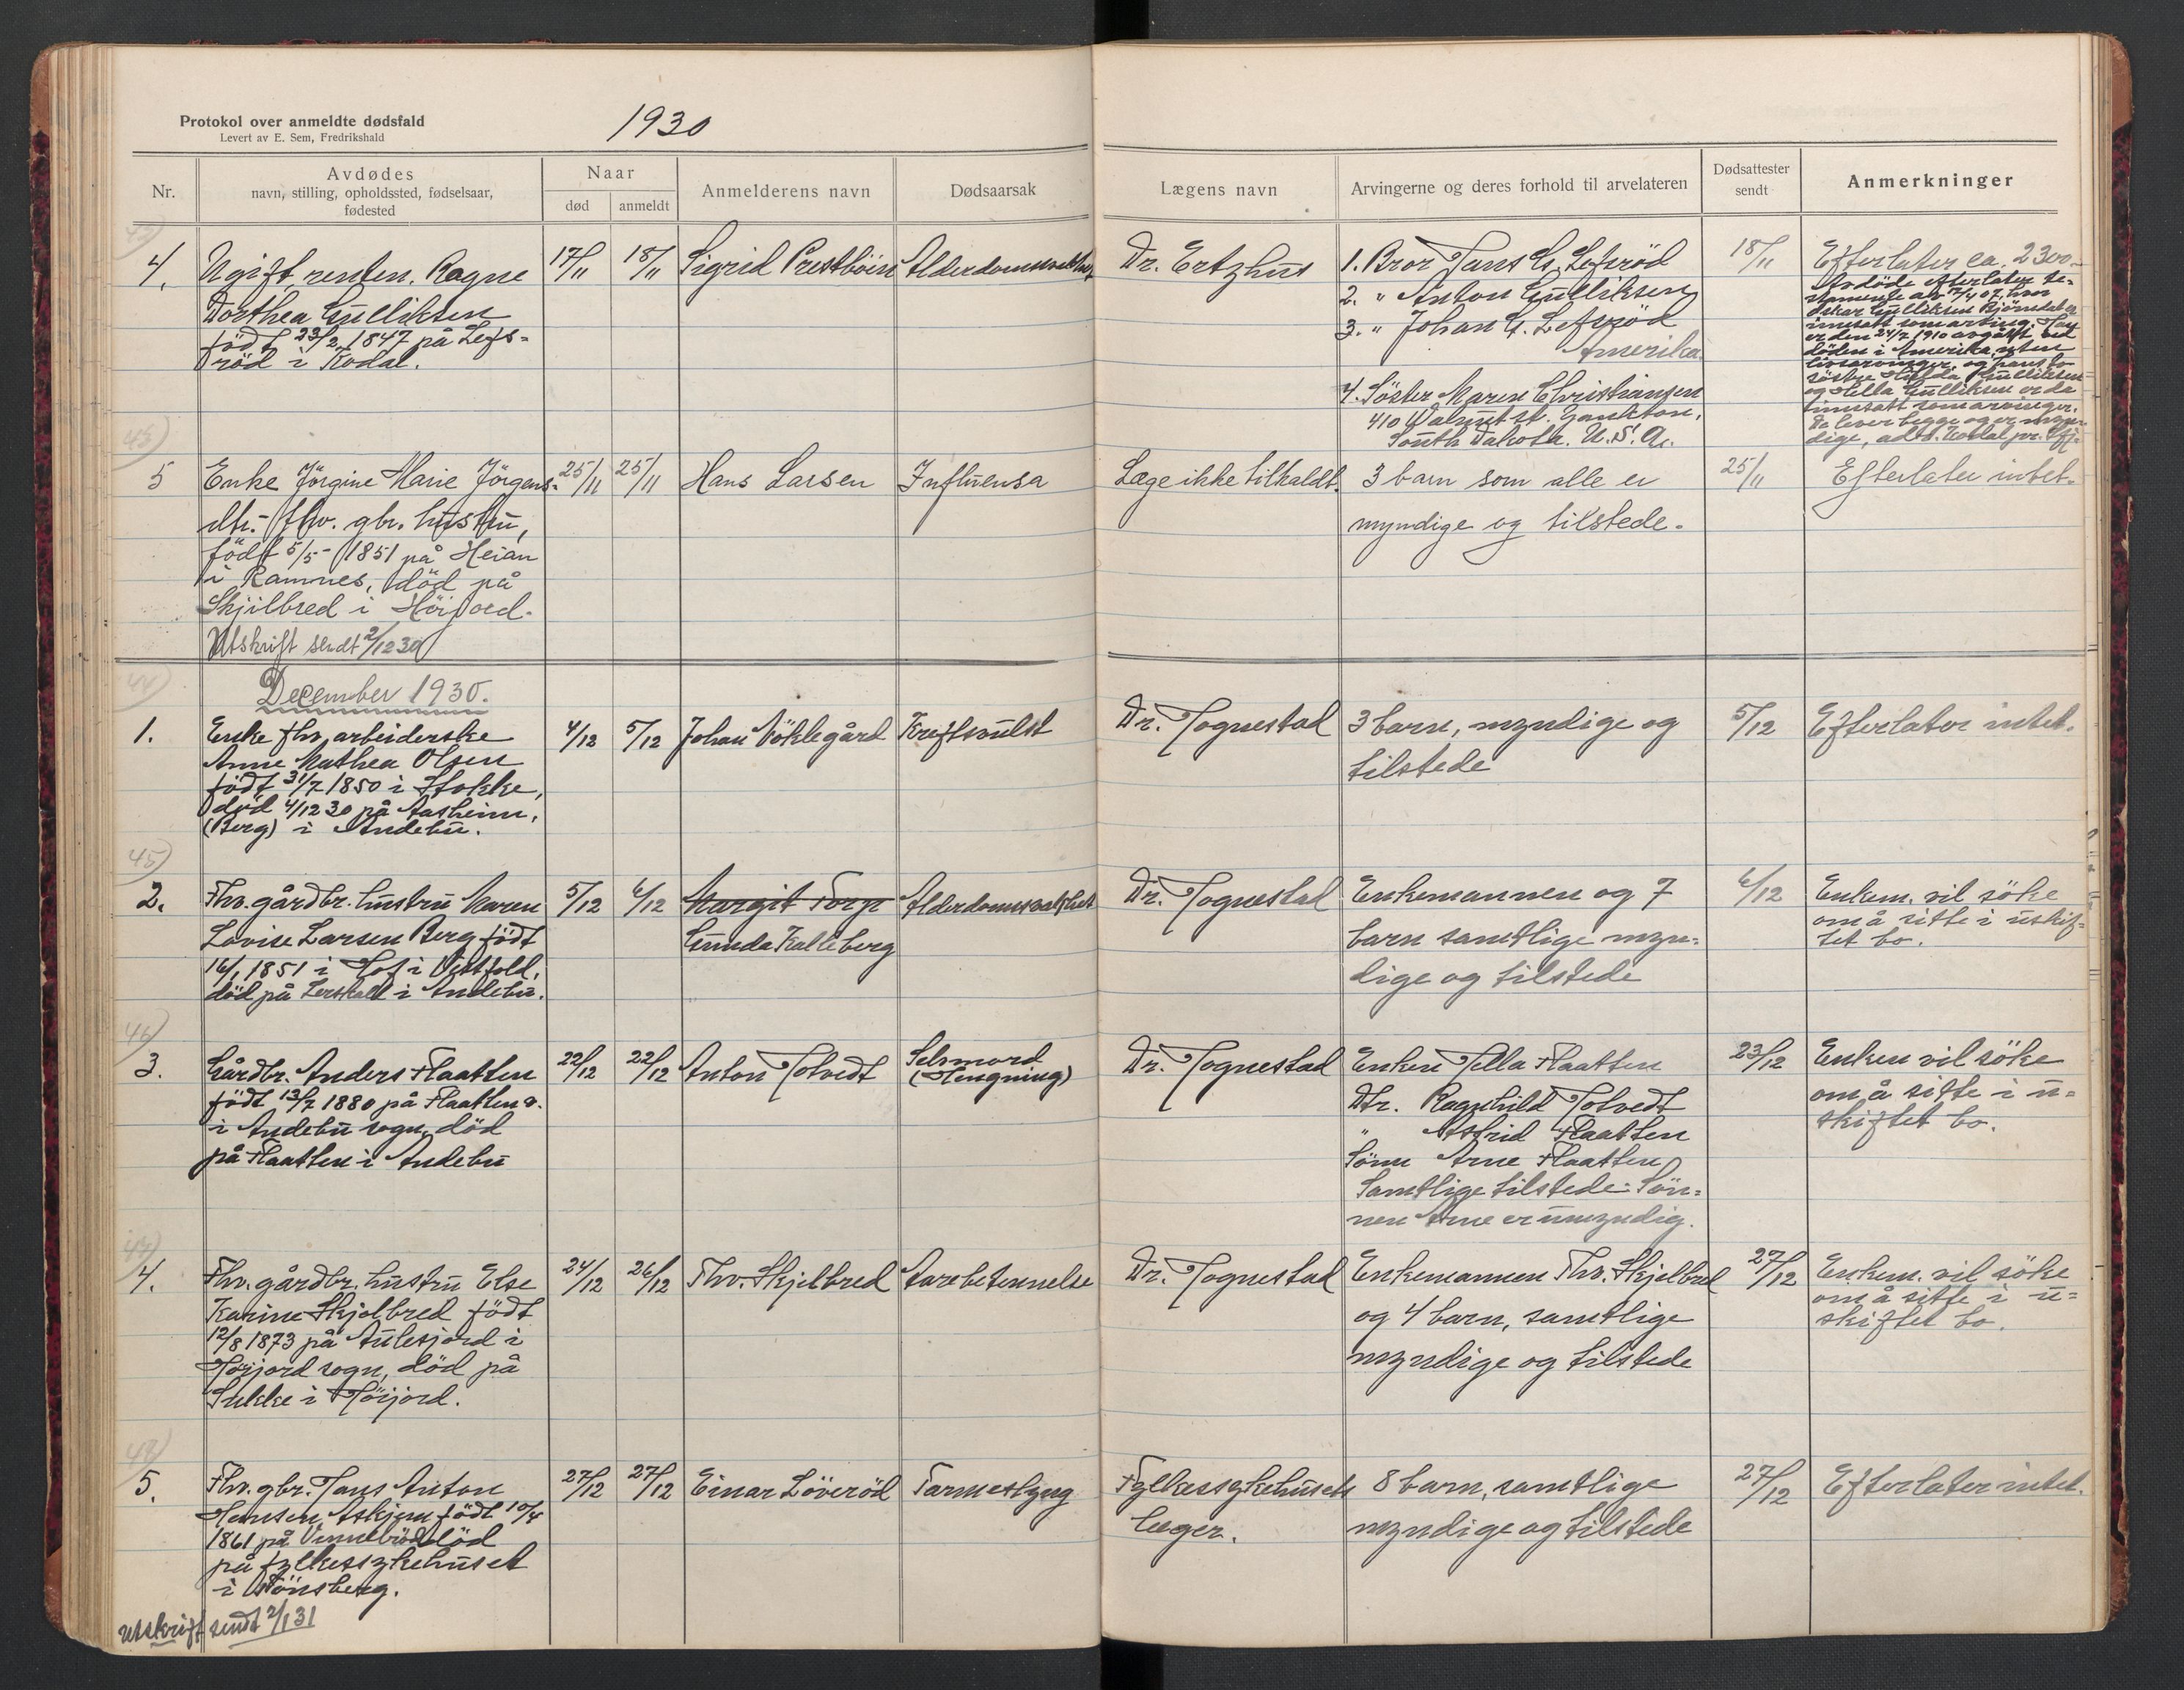 Protokol over anmeldte dødsfald
Levert av E. Sem, Fredrikshald
1930
Nr.
Avdødes
navn, stilling, opholdssted, fødselsaar,
fødested
Naar
død
anmeldt
Anmelderens navn
Dødsaarsak
Lægens navn
Arvingerne og deres forhold til arvelateren
Dødsattester
sendt
Anmerkninger
4.
Ugift, renten. Ragne
Dorthea Gulliksen
født 23/2 1847 på Lefs-
röd i Kodal.
17/11
18/11
Sigrid Prestböin
Alderdomssvakhet
Dr. Ertzhus
1. Bror Hans G. Lefsröd
2. " Anton Gulliksen
3. " Johan G. Lefsröd
Amerika
4. Söster Maren Christiansen
410 Walnut st. Yankton,
South Dakota. U.S.A.
18/11
Efterlater ca. 2300.-
Avdöde efterlater te-
stamente av 17/4 07, hvor
Oskar Gulliksen Björndal er
innsatt som arving. Han
er den 24/7 1910 avgått ved
döden i Amerika uten
livsarvinger, og hans to
søstre Hulda Gulliksen
og Hella Gulliksen er da
innsatt som arvinger.
De lever begge og er myn-
dige, adr. Kodal pr.
43)
5
Enke Jörgine Marie Jörgens-
dtr. fhv. gbr. hustru,
född 5/5- 1851 på Heian
i Ramnes, död på
Skjilbred i Höijord.
Utskrift sendt 2/12 30
25/11
25/11
Hans Larsen
Influensa
Læge ikke tilkaldt.
3 barn som alle er
myndige og tilstede.
25/11
Efterlater intet.
44)
December 1930.
1.
Enke fhv. arbeiderske
Anne Mathea Olsen
född 31/7 1850 i Stokke,
död 4/12 30 på Aasheim,
(Berg) i Andebu.
4/12
5/12
Johan Vöklegård
Kreftsvulst
Dr. Tognestad
3 barn, myndige og
tilstede
5/12
Efterlater intet.
45)
2.
Fhv. gårdbr. hustru Maren
Lovise Larsen Berg född
16/1 1851 i Hof i Vestfold,
död på Lerskall i Andebu.
5/12
6/12
Margit Torp
Gunda Kalleberg
Alderdomssvakhet
Dr. Tognestad
Enkemannen og 7
barn samtlige myn-
dige og tilstede
6/12
Enkem. vil söke
om å sitte i uskif-
tet bo.
46)
3.
Gårdbr. Anders Flaatten
född 13/7 1880 på Flaatten
i Andebu sogn, död
på Flaatten i Andebu
22/12
22/12
Anton Tolvedt
Selvmord
(Hengning)
Dr. Tognestad
Enken Hella Flaatten
Dtr. Ragnhild Tolvedt
" Astrid Flaatten
Sönn Arne Flaatten
Samtlige tilstede. Sön-
nen Arne er umyndig.
23/12
Enken vil söke
om å sitte i u-
skiftet bo.
47)
4.
Fhv. gårdbr. hustru Else
Karine Skjelbred född
12/8 1873 på Aulesjord i
Höijord sogn, död på
Sukke i Höijord.
24/12
26/12
Thv. Skjelbred
Aarebetennelse
Dr. Tognestad
Enkemannen Thv. Skjelbred
og 4 barn, samtlige
myndige og tilstede
27/12
Enkem. vil söke
om å sitte i u-
skiftet bo.
5.
Fhv. gbr. Hans Anton
Hansen Askjem född 10/4
1861 på död
på fylkessykehuset
i Tönsberg.
Utskrift sendt 2/1 31
27/12
27/12
Einar Löveröd
Tarmslyng
Fylkessykehusets
læger.
8 barn, samtlige
myndige og tilstede
27/12
Efterlater intet.